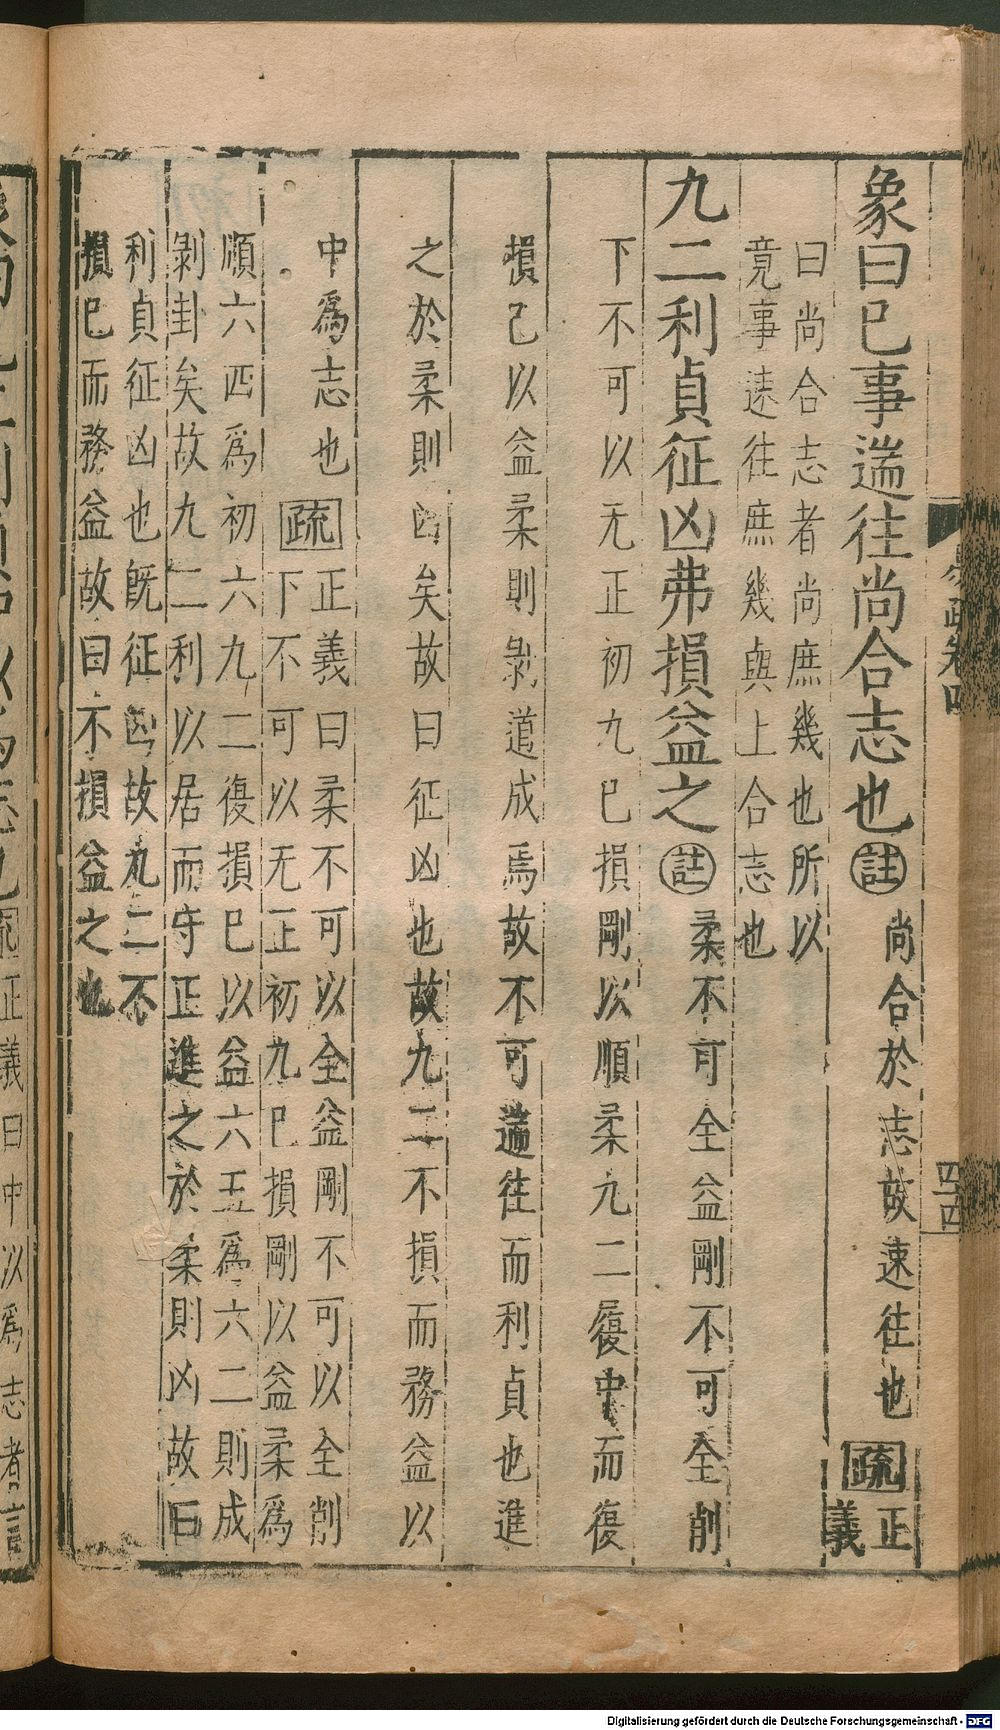 象曰巳事遄往尚合志也註尚合於志故速往也疏正義
曰尚合志者尚庶幾也所以
竟事速往庶幾與上合志也
九二利貞征凶弗損益之註柔不可全益剛不可全削
下不可以无正初九巳損剛以順柔九二履中而復
損己以益柔則剝道成焉故不可遄往而利貞也進
之於柔則凶矣故曰征凶也故九二不損而務益以
中爲志也疏正義曰柔不可以全益剛不可以全削
下不可以无正初九巳損剛以益柔爲
順六四爲初六九二復損巳以益六五爲六二則成
剝卦矣故九二利以居而守正進之於柔則凶故曰
利貞征凶也旣征凶故九二不
損巳而務益故曰不損益之也
正義曰中以爲志者言
Digitalisierung gefördert durch die Deutsche Forschungsgemeinschaft - DFG